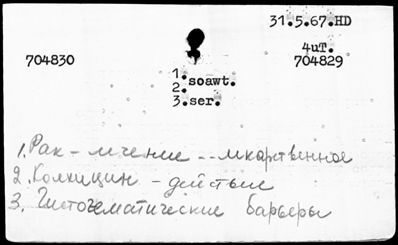 31.5.67.HD
4uT.
704830
704829
1.soawt.
2.
3.ser.
1. Рак - лечение -- лекарственное
2. Колхицин - действие
3. Гистогематические барьеры